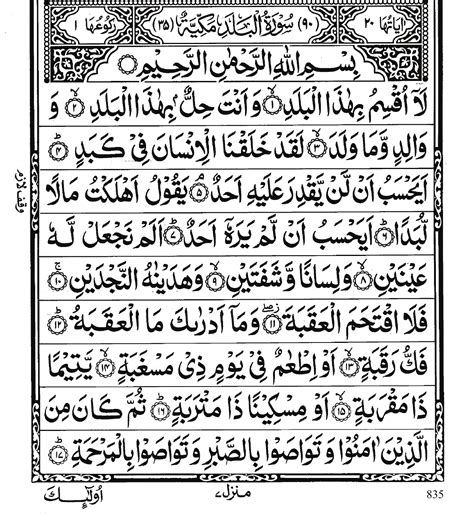 اٰیَاتُهَا ٢٠ (٩٠) سُوْرَةُ الْبَلَدِ مَكِّيَّةٌ (٣٥) رُكُوْعُهَا ١
بِسْمِ اللّٰهِ الرَّحْمٰنِ الرَّحِيْمِ
لَاۤ اُقْسِمُ بِهٰذَا الْبَلَدِ ۝١ وَاَنْتَ حِلٌّۢ بِهٰذَا الْبَلَدِ ۝٢ وَ
وَالِدٍ وَّمَا وَلَدَ ۝٣ لَقَدْ خَلَقْنَا الْاِنْسَانَ فِيْ كَبَدٍ ۝٤
اَيَحْسَبُ اَنْ لَّنْ يَّقْدِرَ عَلَيْهِ اَحَدٌ ۝٥ يَقُوْلُ اَهْلَكْتُ مَالًا
لُّبَدًا ۝٦ اَيَحْسَبُ اَنْ لَّمْ يَرَهٗۤ اَحَدٌ ۝٧ اَلَمْ نَجْعَلْ لَّهٗ
عَيْنَيْنِ ۝٨ وَلِسَانًا وَّشَفَتَيْنِ ۝٩ وَهَدَيْنٰهُ النَّجْدَيْنِ ۝١٠
فَلَا اقْتَحَمَ الْعَقَبَةَ ۝١١ وَمَاۤ اَدْرٰىكَ مَا الْعَقَبَةُ ۝١٢
فَكُّ رَقَبَةٍ ۝١٣ اَوْ اِطْعٰمٌ فِيْ يَوْمٍ ذِيْ مَسْغَبَةٍ ۝١٤ يَّتِيْمًا
ذَا مَقْرَبَةٍ ۝١٥ اَوْ مِسْكِيْنًا ذَا مَتْرَبَةٍ ۝١٦ ثُمَّ كَانَ مِنَ
الَّذِيْنَ اٰمَنُوْا وَتَوَاصَوْا بِالصَّبْرِ وَتَوَاصَوْا بِالْمَرْحَمَةِ ۝١٧
وقف لازم
اُولٰٓئِكَ منزل ٧ 835